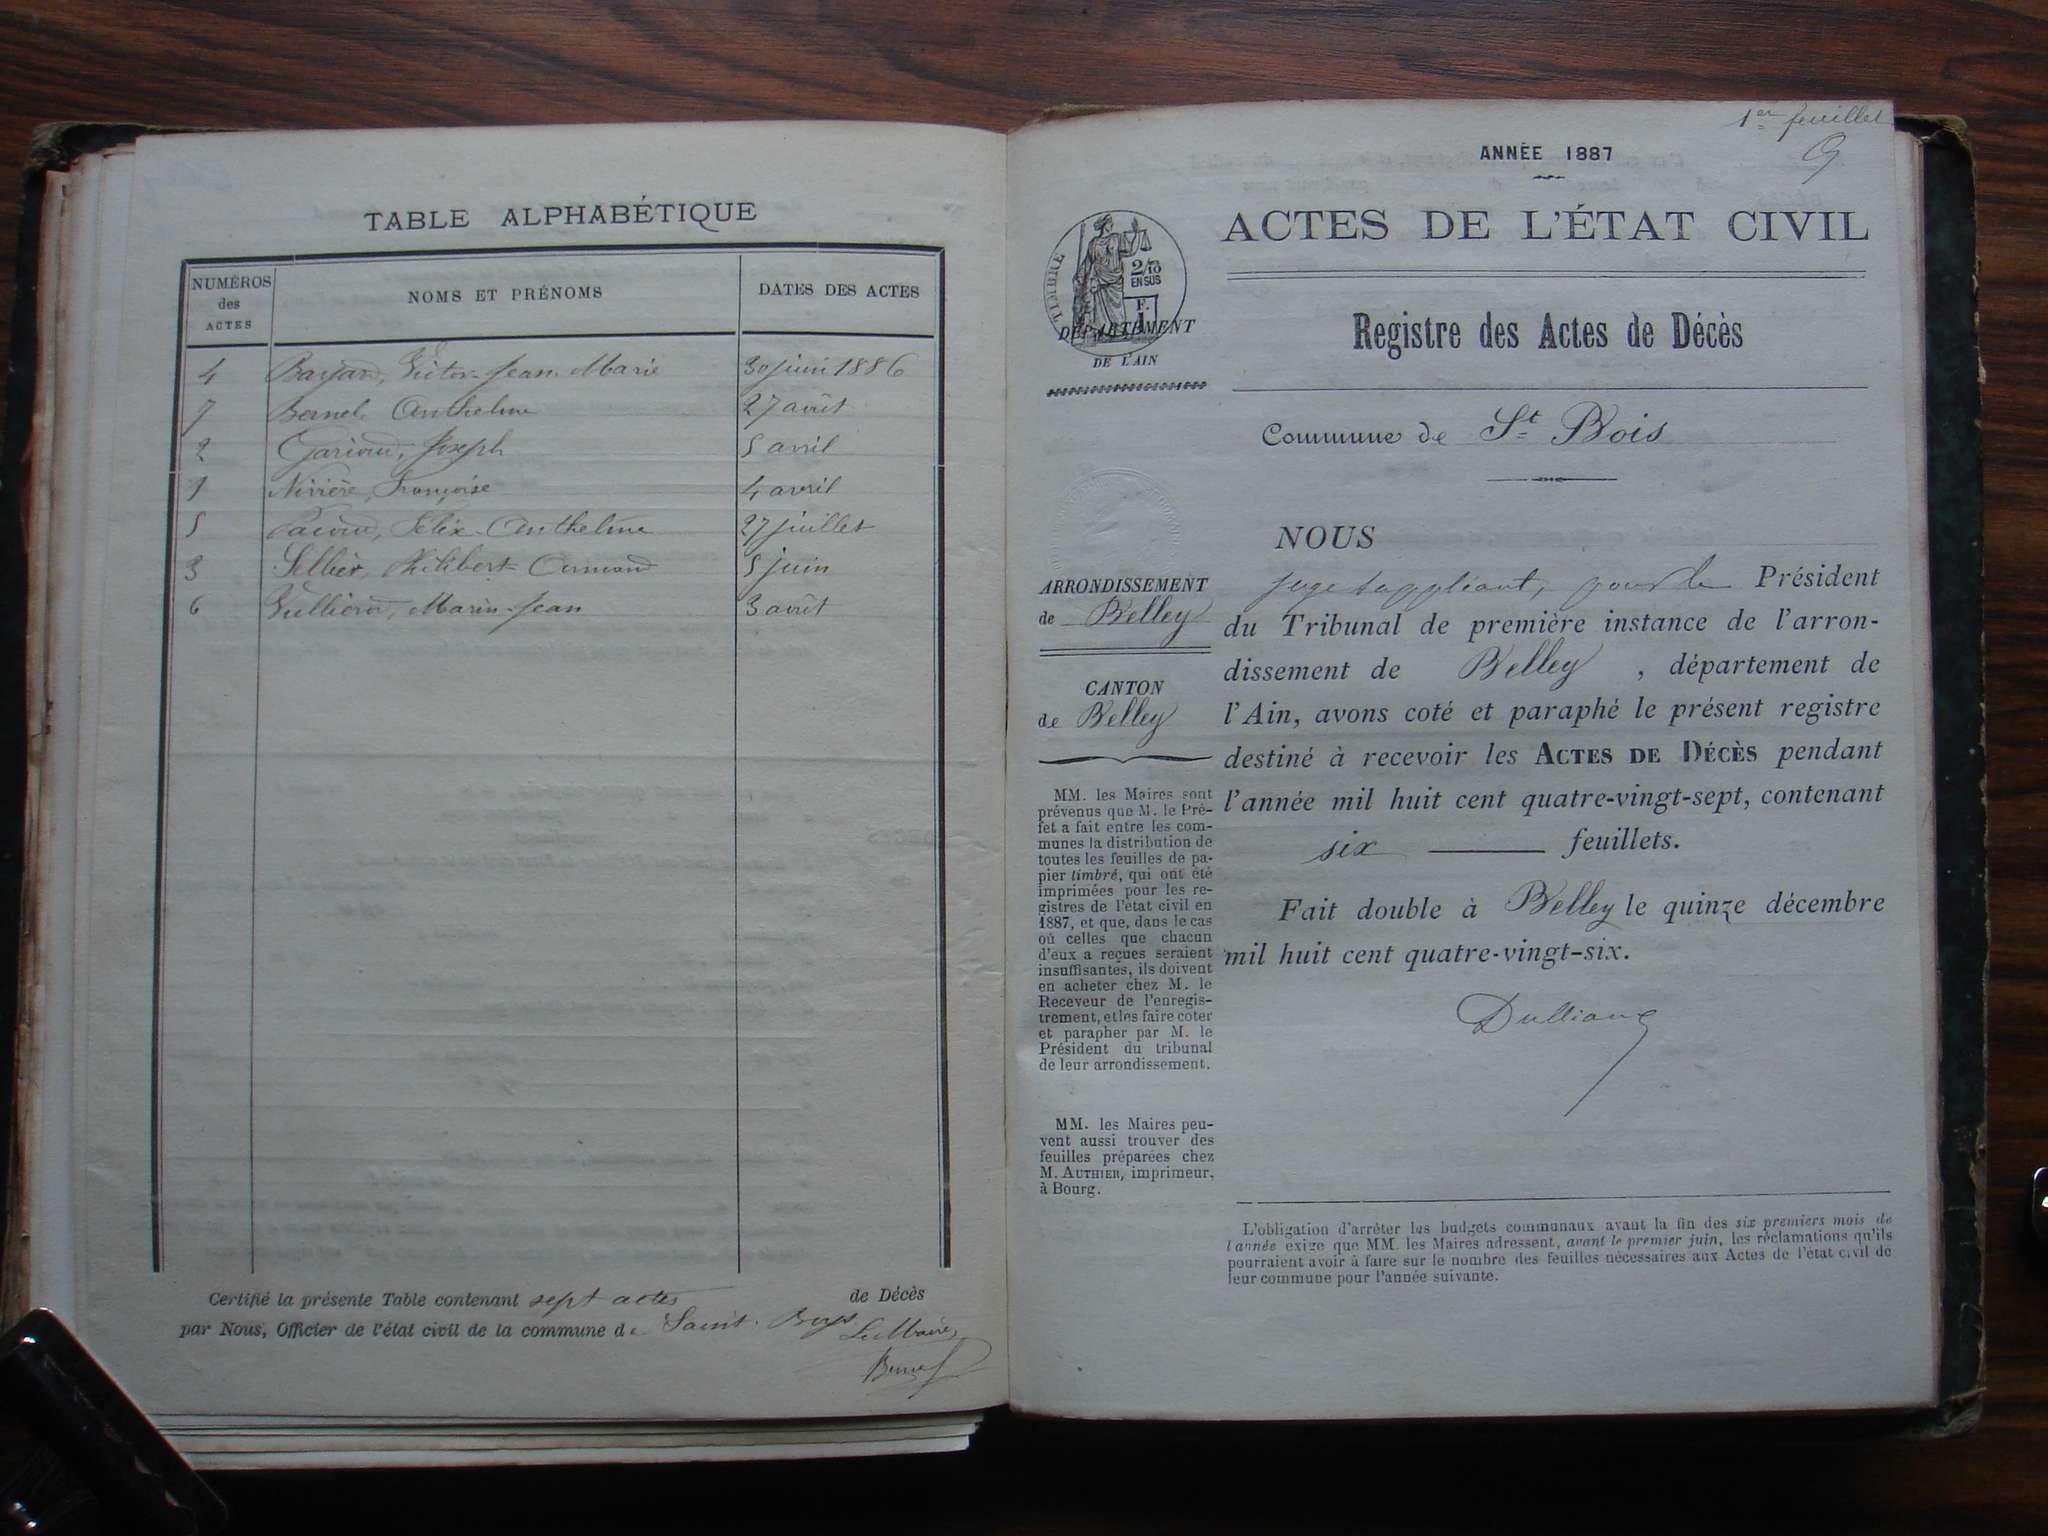 TABLE ALPHABÉTIQUE
NUMÉROS des ACTES
NOMS ET PRÉNOMS
DATES DES ACTES
4 Victor-Jean-Marie 30 juin 1886
7 Bernel, Anthelme 27 août
2 Joseph 5 avril
1 Françoise 4 avril
5 Félix-Anthelme 27 juillet
3 Sellier, Philibert-Armand 5 juin
6 Marin-Jean 3 août
Certifié la présente Table contenant sept actes de Décès
par Nous, Officier de l'état civil de la commune de Saint-Boys
Le Maire,
1er feuillet
ANNÉE 1887
ACTES DE L'ÉTAT CIVIL
TIMBRE
2/10
EN SUS
DÉPARTEMENT
DE L'AIN
Registre des Actes de Décès
Commune de St Bois
ARRONDISSEMENT
de Belley
CANTON
de Belley
MM. les Maires sont
prévenus que M. le Pré-
fet a fait entre les com-
munes la distribution de
toutes les feuilles de pa-
pier timbré, qui ont été
imprimées pour les re-
gistres de l'état civil en
1887, et que, dans le cas
où celles que chacun
d'eux a reçues seraient
insuffisantes, ils doivent
en acheter chez M. le
Receveur de l'enregis-
trement, et les faire coter
et parapher par M. le
Président du tribunal
de leur arrondissement.
MM. les Maires peu-
vent aussi trouver des
feuilles préparées chez
M. AUTHIER, imprimeur,
à Bourg.
NOUS
juge suppléant, pour le Président
du Tribunal de première instance de l'arron-
dissement de Belley, département de
l'Ain, avons coté et paraphé le présent registre
destiné à recevoir les ACTES DE DÉCÈS pendant
l'année mil huit cent quatre-vingt-sept, contenant
six feuillets.
Fait double à Belley le quinze décembre
mil huit cent quatre-vingt-six.
L'obligation d'arrêter les budgets communaux avant la fin des six premiers mois de
l'année exige que MM. les Maires adressent, avant le premier juin, les réclamations qu'ils
pourraient avoir à faire sur le nombre des feuilles nécessaires aux Actes de l'état civil de
leur commune pour l'année suivante.